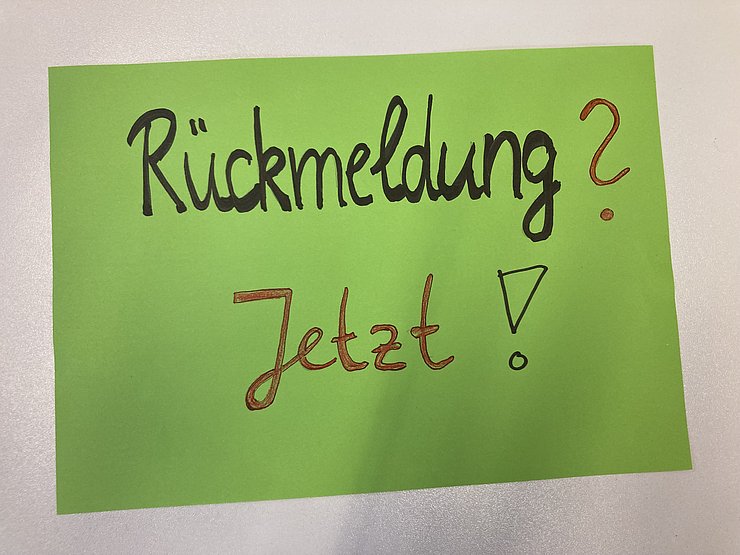 Rückmeldung?
Jetzt!